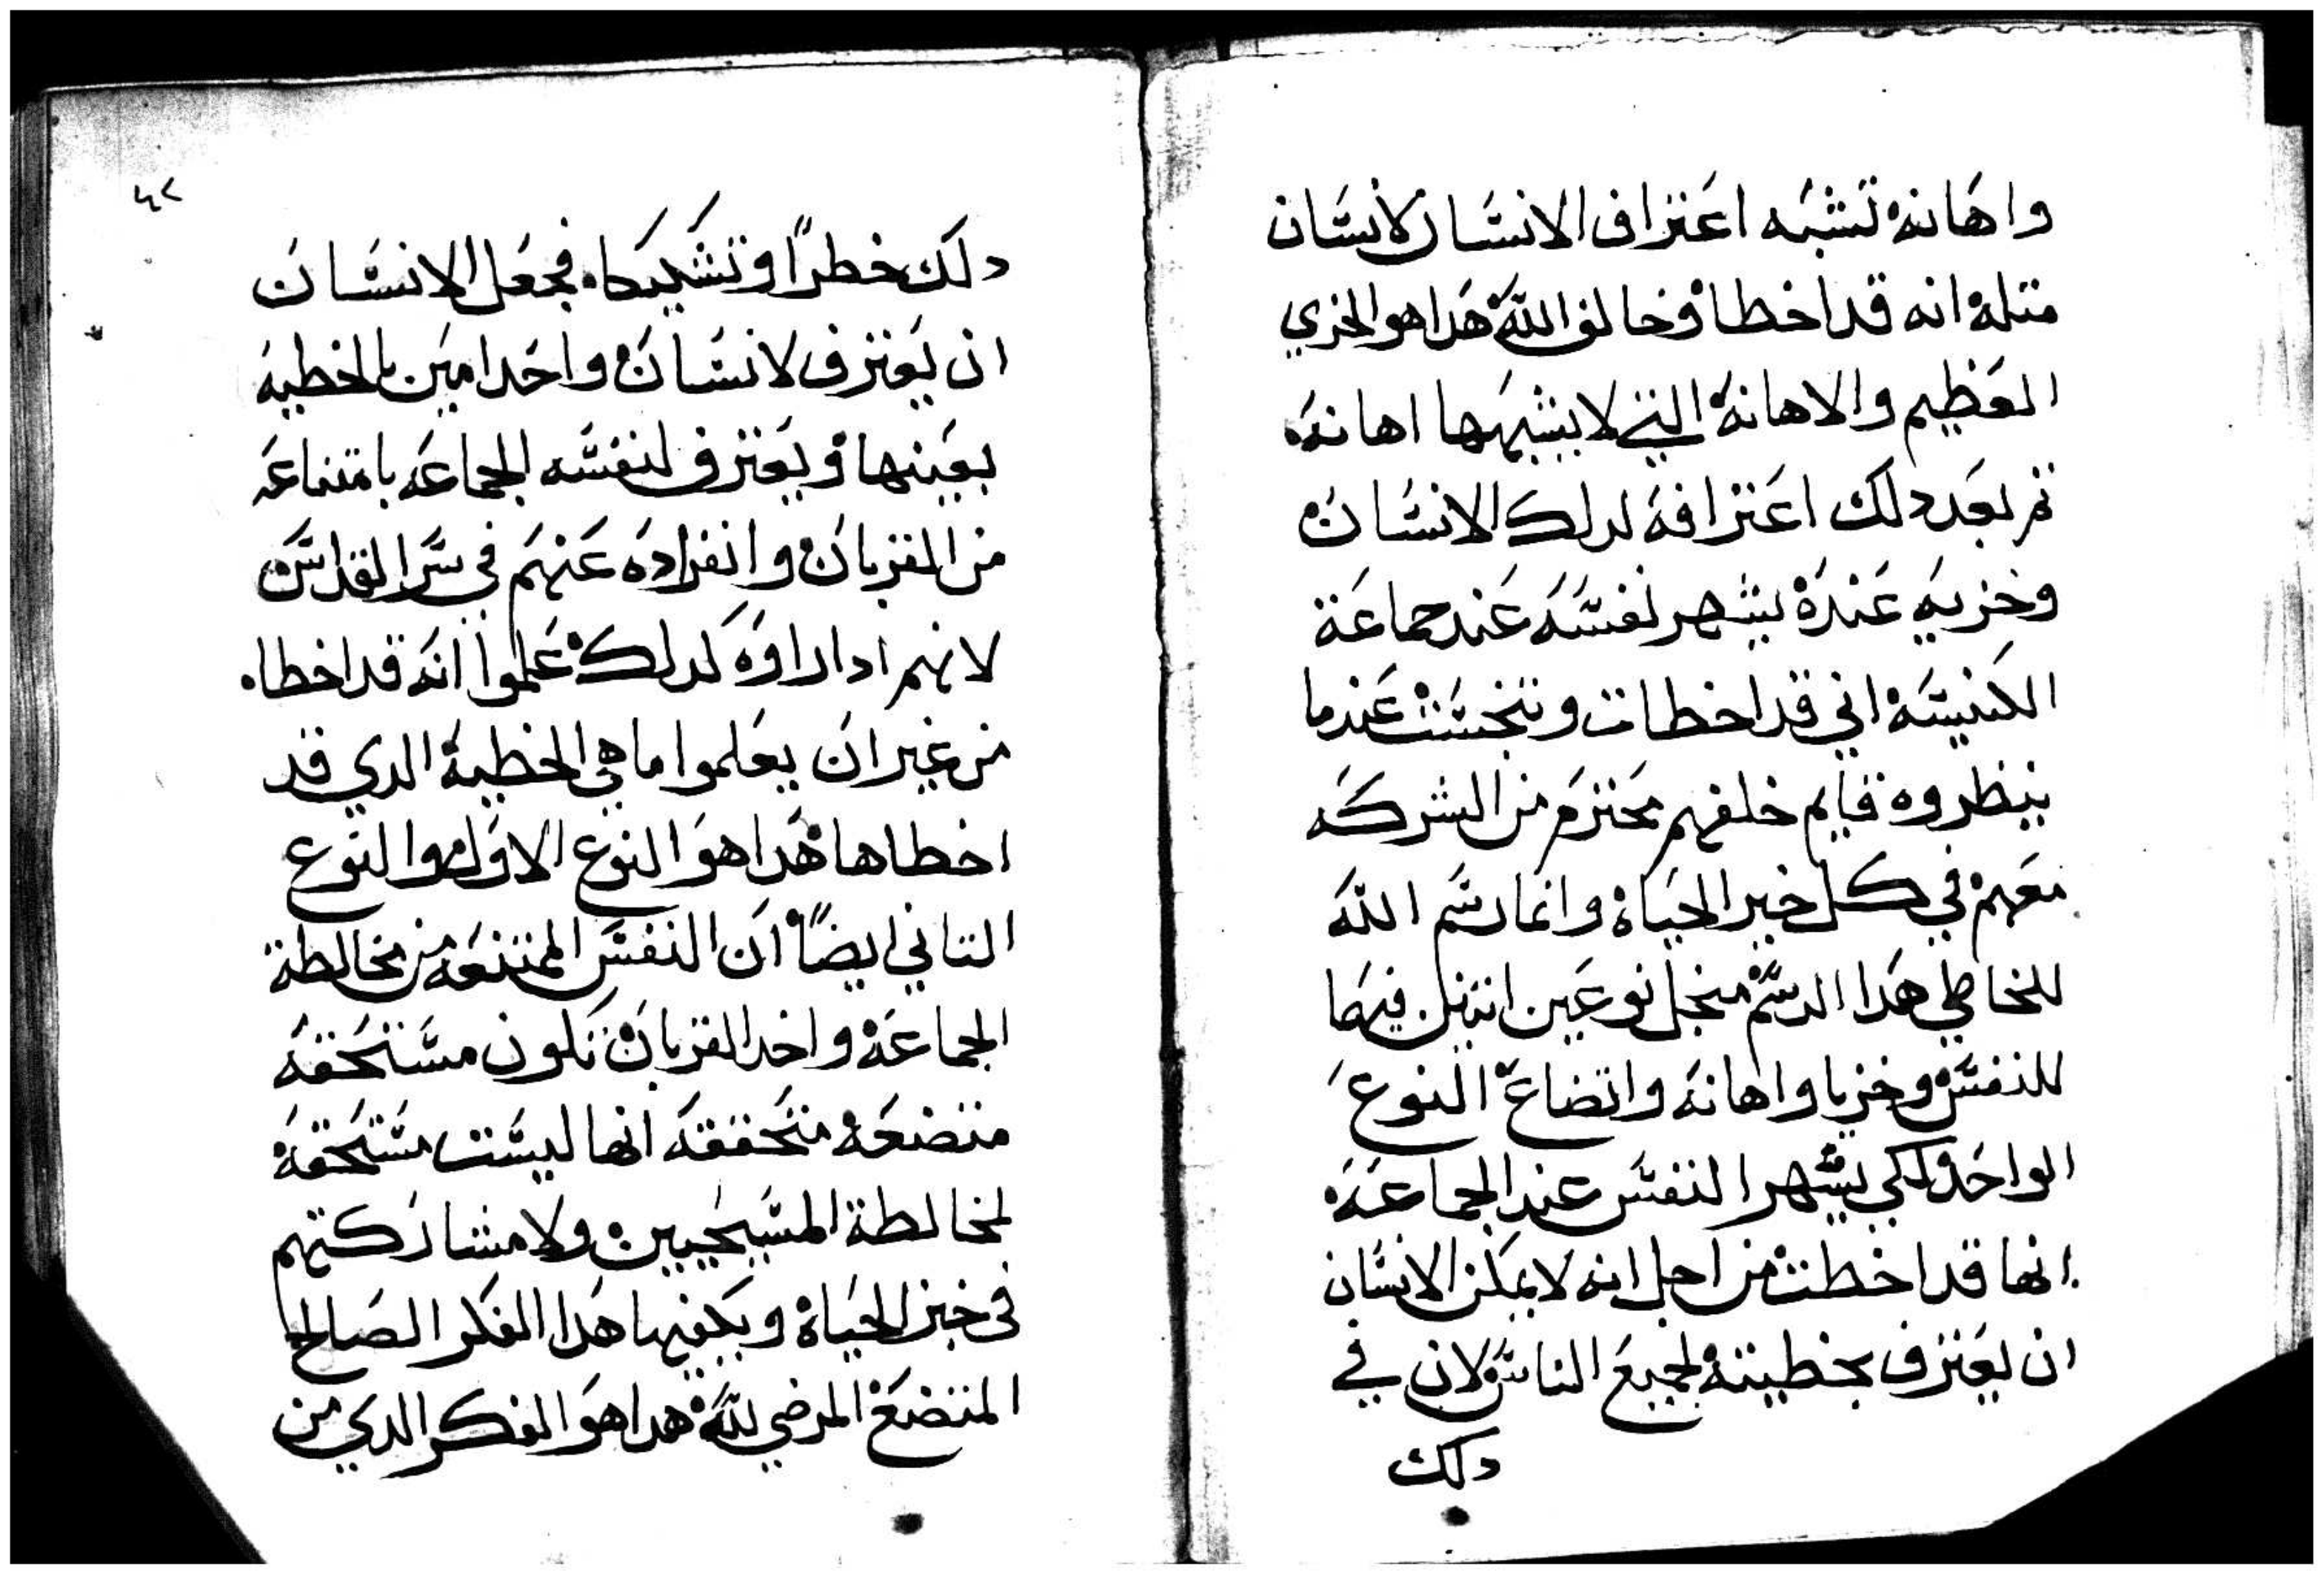 واهانه تشبه اعتراف الانسان لانسان
متله انه قد اخطا وخالف الله هدا هو الخزي
العظيم والاهانة التي لا يشبهها اهانه
تم بعد دلك اعترافه لدلك الانسان
وخزيه عنده يشهر نفسه عند جماعة
الكنيسه اني قد اخطات وتنجست عندما
ينظروه قايم خلفهم محترم من الشركه
معهم في كل خبز الحياة وانما رسم الله
للخاطي هدا الرسم منجل نوعين اتنين فيهما
للنفس وخزيا واهانه واتضاع النوع
الواحد ولكي يشهر النفس عند الجماعه
انها قد اخطت من اجل انه لا يمكن الانسان
ان يعترف بخطيته لجميع الناس لان في
دلك
٤٢
دلك خطرًا وتشكيكا. فجعل الانسان
ان يعترف لانسان واحد امين بالخطيه
بعينها ويعترف لنفسه الجماعه بامتناعه
من القربان وانفراده عنهم في سر القداس
لانهم ادا راوه كدلك علموا انه قد اخطا.
من غير ان يعلموا ما هي الخطية الدي قد
اخطاها هدا هو النوع الاول والنوع
التاني ايضًا ان النفس الممتنعه من مخالطة
الجماعه واخد القربان تكون مستحقه
متضعه متحققه انها ليست مستحقه
لمخالطة المسيحيين ولا مشاركتهم
في خبز الحياة ويكفيها هدا الفكر الصالح
المتضع المرضي لله هدا هو الفكر الدي من